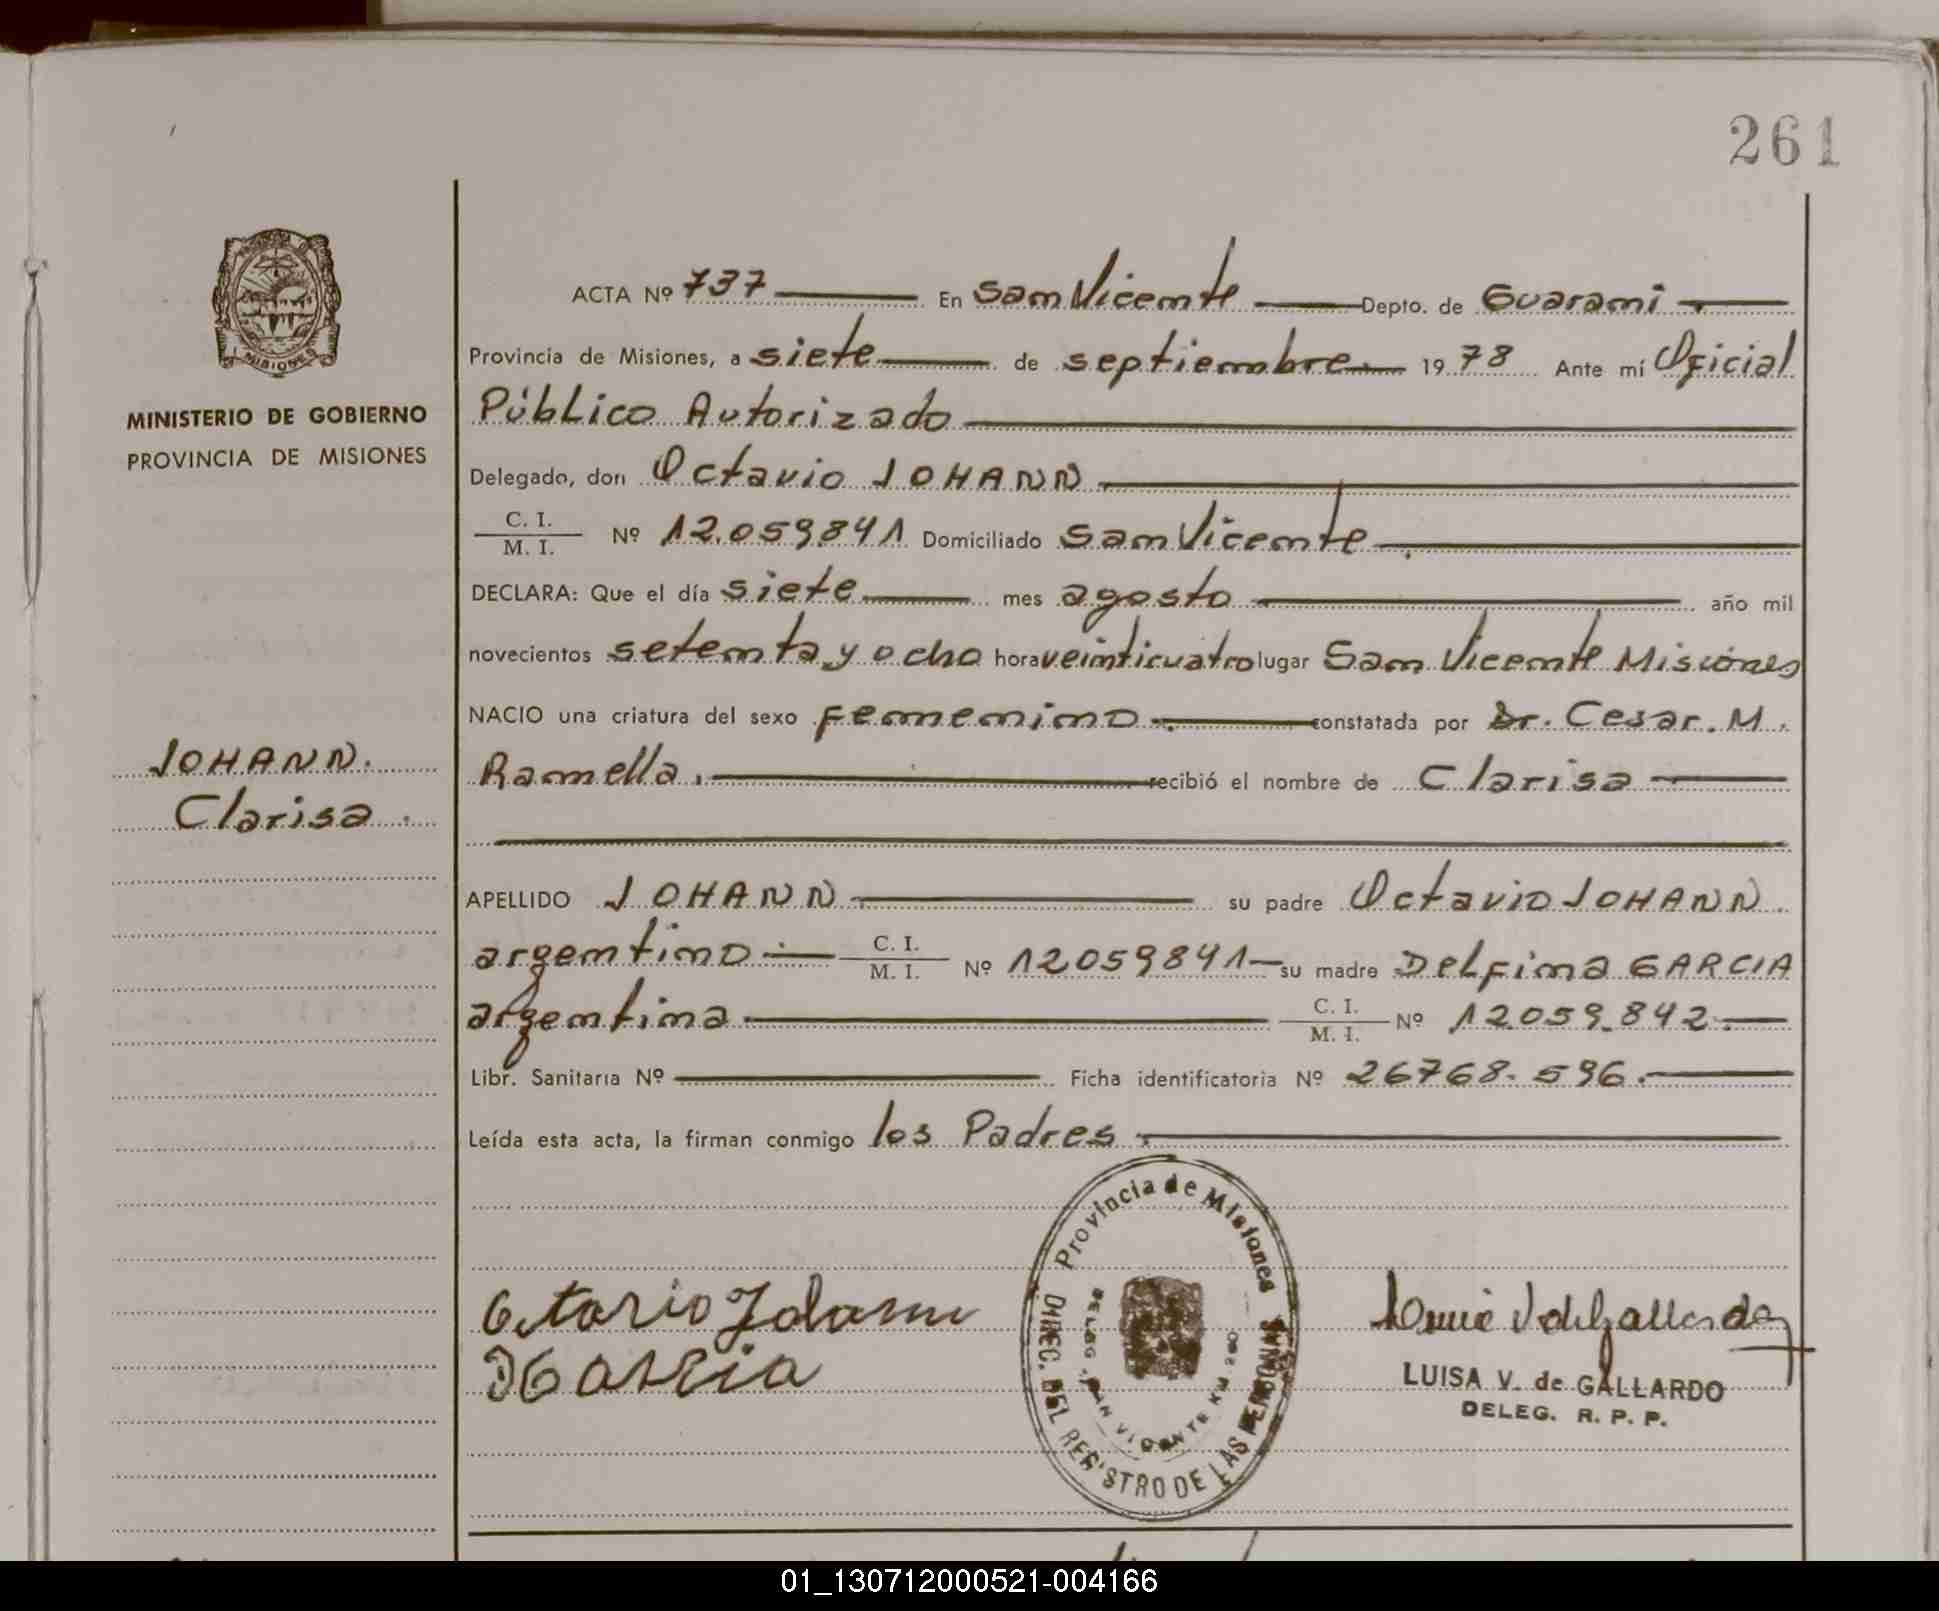 261
ACTA Nº 737 En San Vicente Depto. de Guarani
Provincia de Misiones, a siete de septiembre 1978 Ante mí Oficial
Público Autorizado
MINISTERIO DE GOBIERNO
PROVINCIA DE MISIONES
Delegado, don Octavio JOHANN
C. I.
M. I. Nº 12.059.841 Domiciliado San Vicente
DECLARA: Que el día siete mes agosto año mil
novecientos setenta y ocho hora veinticuatro lugar San Vicente Misiones
NACIO una criatura del sexo femenino constatada por Dr. Cesar. M.
Ramella. recibió el nombre de Clarisa
JOHANN.
Clarisa.
APELLIDO JOHANN su padre Octavio JOHANN.
argentino C. I.
M. I. Nº 12059841 su madre Delfina GARCIA
argentina C. I.
M. I. Nº 12059.842
Libr. Sanitaria Nº Ficha identificatoria Nº 26768.596.
Leída esta acta, la firman conmigo los Padres
Provincia de Misiones
DIREC. DEL REGISTRO DE LAS PERSONAS
DELEG. SAN VICENTE KM 260
MISIONES
Octavio Johann
D Garcia
Luisa V de Gallardo
LUISA V. de GALLARDO
DELEG. R. P. P.
01_130712000521-004166